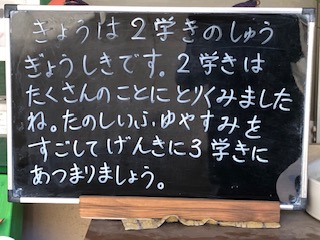 きょうは2学きのしゅう
ぎょうしきです。2学きは
たくさんのことにとりくみました
ね。たのしいふゆやすみを
すごしてげんきに3学きに
あつまりましょう。